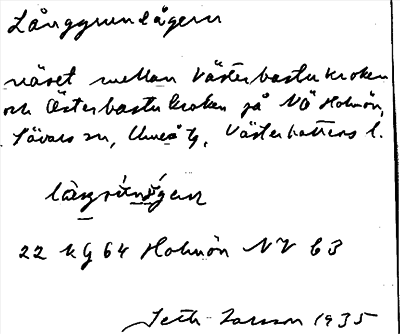 Långgrundågern
näset mellan Västerbastukroken
och Österbastukroken på NÖ Holmön,
Sävars sn, Umeå tg, Västerbottens l.
22 Kg 64 Holmön NV b3
Seth Larsson 1935